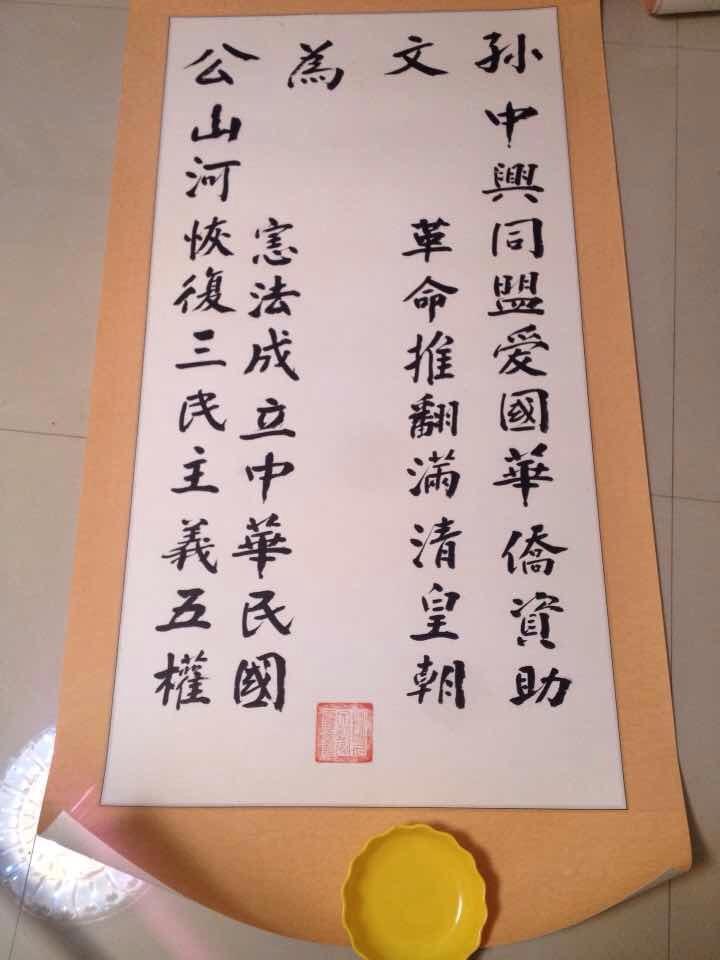 孙中興同盟愛國華僑資助
文革命推翻滿清皇朝
為
公山河恢復三民主義五權
憲法成立中華民國